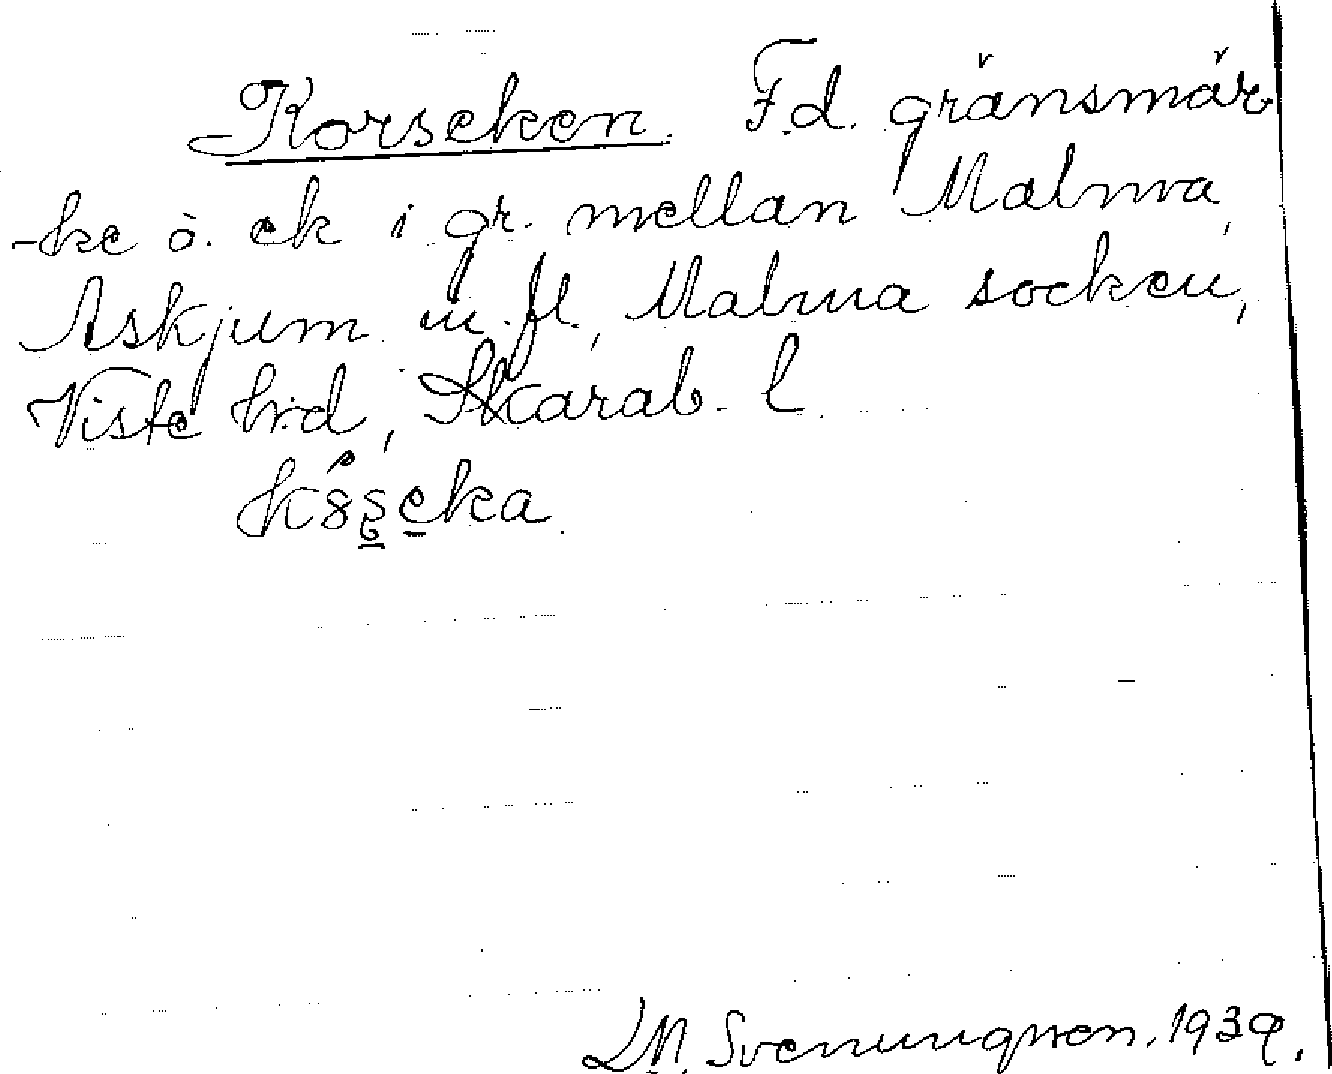 Korseken. F.d. gränsmär
-ke å. ek i gr. mellan Malma,
Askjum m. fl., Malma socken,
Viste hrd, Skarab. l.
L M. Svenungsson. 1939.